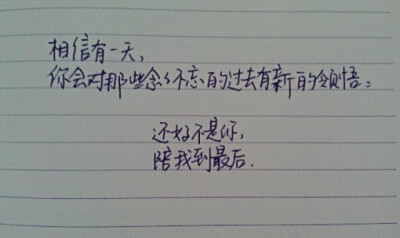 相信有一天，
你会对那些念念不忘的过去有新的领悟：
还好不是你，
陪我到最后.